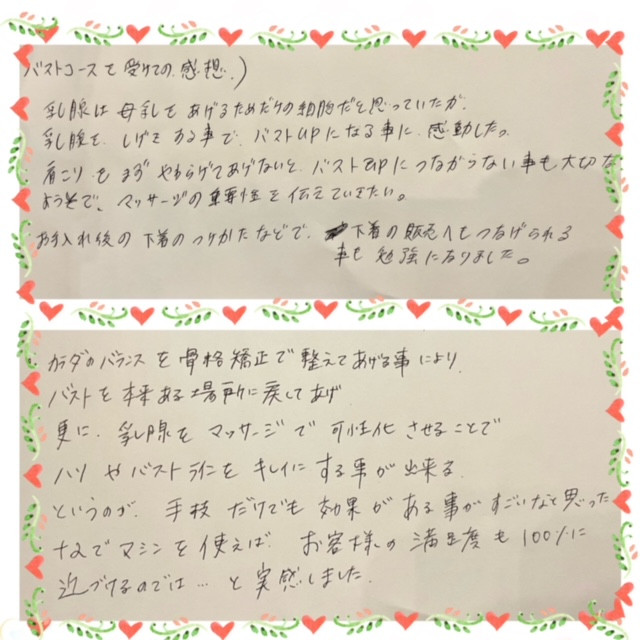 バストコースを受けての感想。)
乳腺は母乳をあげるためだけの細胞だと思っていたが、
乳腺を、しげきする事で、バストupになる事に感動した。
肩こりもまずやわらげてあげないと、バストupにつながらない事も大切な
ようそで、マッサージの重要性を伝えていきたい。
お手入れ後の下着のつけかたなどで、下着の販売へもつなげられる
事も勉強になりました。
カラダのバランスを骨格矯正で整えてあげる事により、
バストを本来ある場所に戻してあげ
更に、乳腺をマッサージで可性化させることで
ハリやバストラインをキレイにする事が出来る。
というのが、手技だけでも効果がある事がすごいなと思った
+αでマシンを使えば、お客様の満足度も100%に
近づけるのでは…と実感しました。